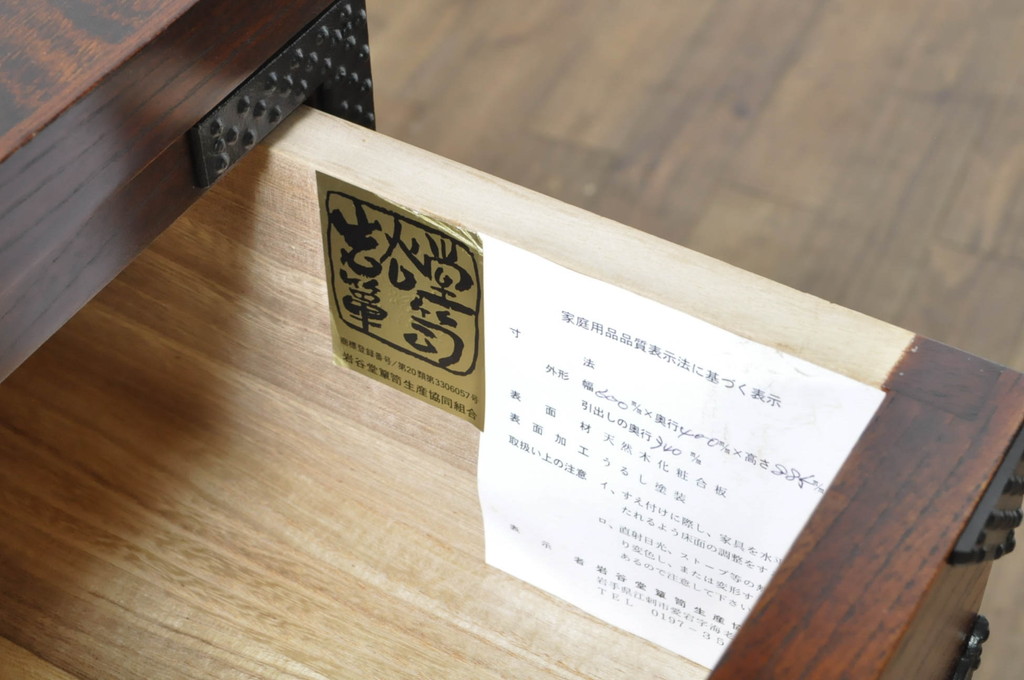 岩谷堂箪笥
商標登録番号/第20類第3306057号
岩谷堂箪笥生産協同組合
家庭用品品質表示法に基づく表示
寸法
外形 幅600㎜×奥行400㎜×高さ
引出しの奥行340㎜
表面材 天然木化粧合板
表面加工 うるし塗装
取扱い上の注意
イ、すえ付けに際し、家具を水
たれるよう床面の調整をす
ロ、直射日光、ストーブ等の
り変色し、または変形す
あるので注意して下さい
表示者 岩谷堂箪笥生産協
岩手県江刺市愛宕字海老
TEL 0197-35